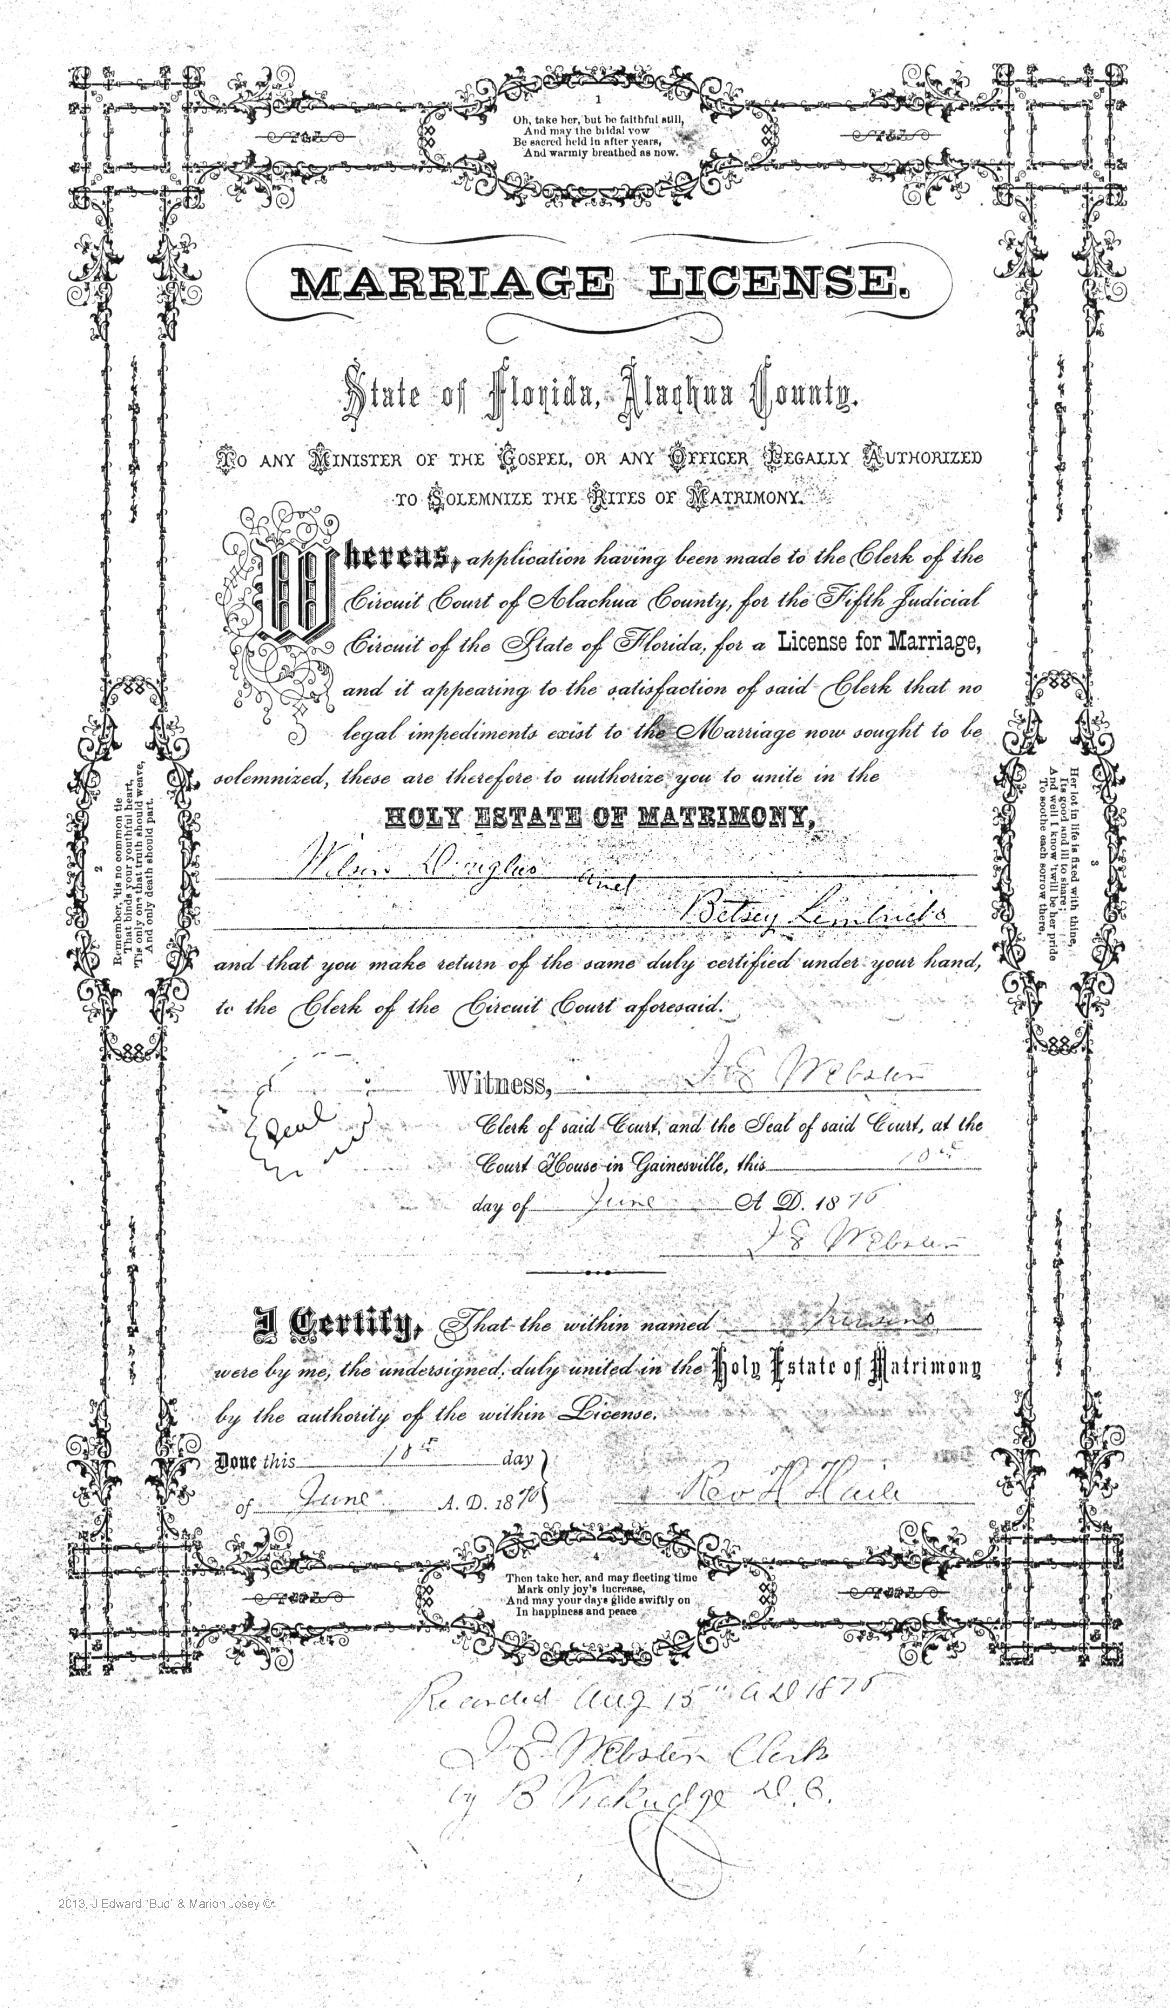 1
Oh, take her, but be faithful still,
And may the bridal vow
Be sacred held in after years,
And warmly breathed as now.
MARRIAGE LICENSE.
State of Florida, Alachua County.
TO ANY MINISTER OF THE GOSPEL, OR ANY OFFICER LEGALLY AUTHORIZED
TO SOLEMNIZE THE RITES OF MATRIMONY.
Whereas, application having been made to the Clerk of the
Circuit Court of Alachua County, for the Fifth Judicial
Circuit of the State of Florida, for a License for Marriage,
and it appearing to the satisfaction of said Clerk that no
legal impediments exist to the Marriage now sought to be
solemnized, these are therefore to authorize you to unite in the
HOLY ESTATE OF MATRIMONY,
Wilson Douglas and
Betsey
and that you make return of the same duly certified under your hand,
to the Clerk of the Circuit Court aforesaid.
2
Remember, 'tis no common tie
That binds your youthful heart,
'Tis only one that truth should weave,
And only death should part.
3
Her lot in life is fixed with thine,
Its good and ill to share;
And well I know 'twill be her pride
To soothe each sorrow there,
Seal
Witness, J E Webster
Clerk of said Court, and the Seal of said Court, at the
Court House in Gainesville, this
day of June A. D. 1876
J E Webster
I Certify, That the within named persons
were by me, the undersigned, duly united in the Holy Estate of Matrimony
by the authority of the within License.
Done this 18th day
of June A. D. 1876
Rev H Haile
4
Then take her, and may fleeting time
Mark only joy's increase,
And may your days glide swiftly on
In happiness and peace
Recorded Aug 15" A D 1876
J E Webster Clerk
by B D. C.
2013, J Edward "Bud" & Marion Josey ©